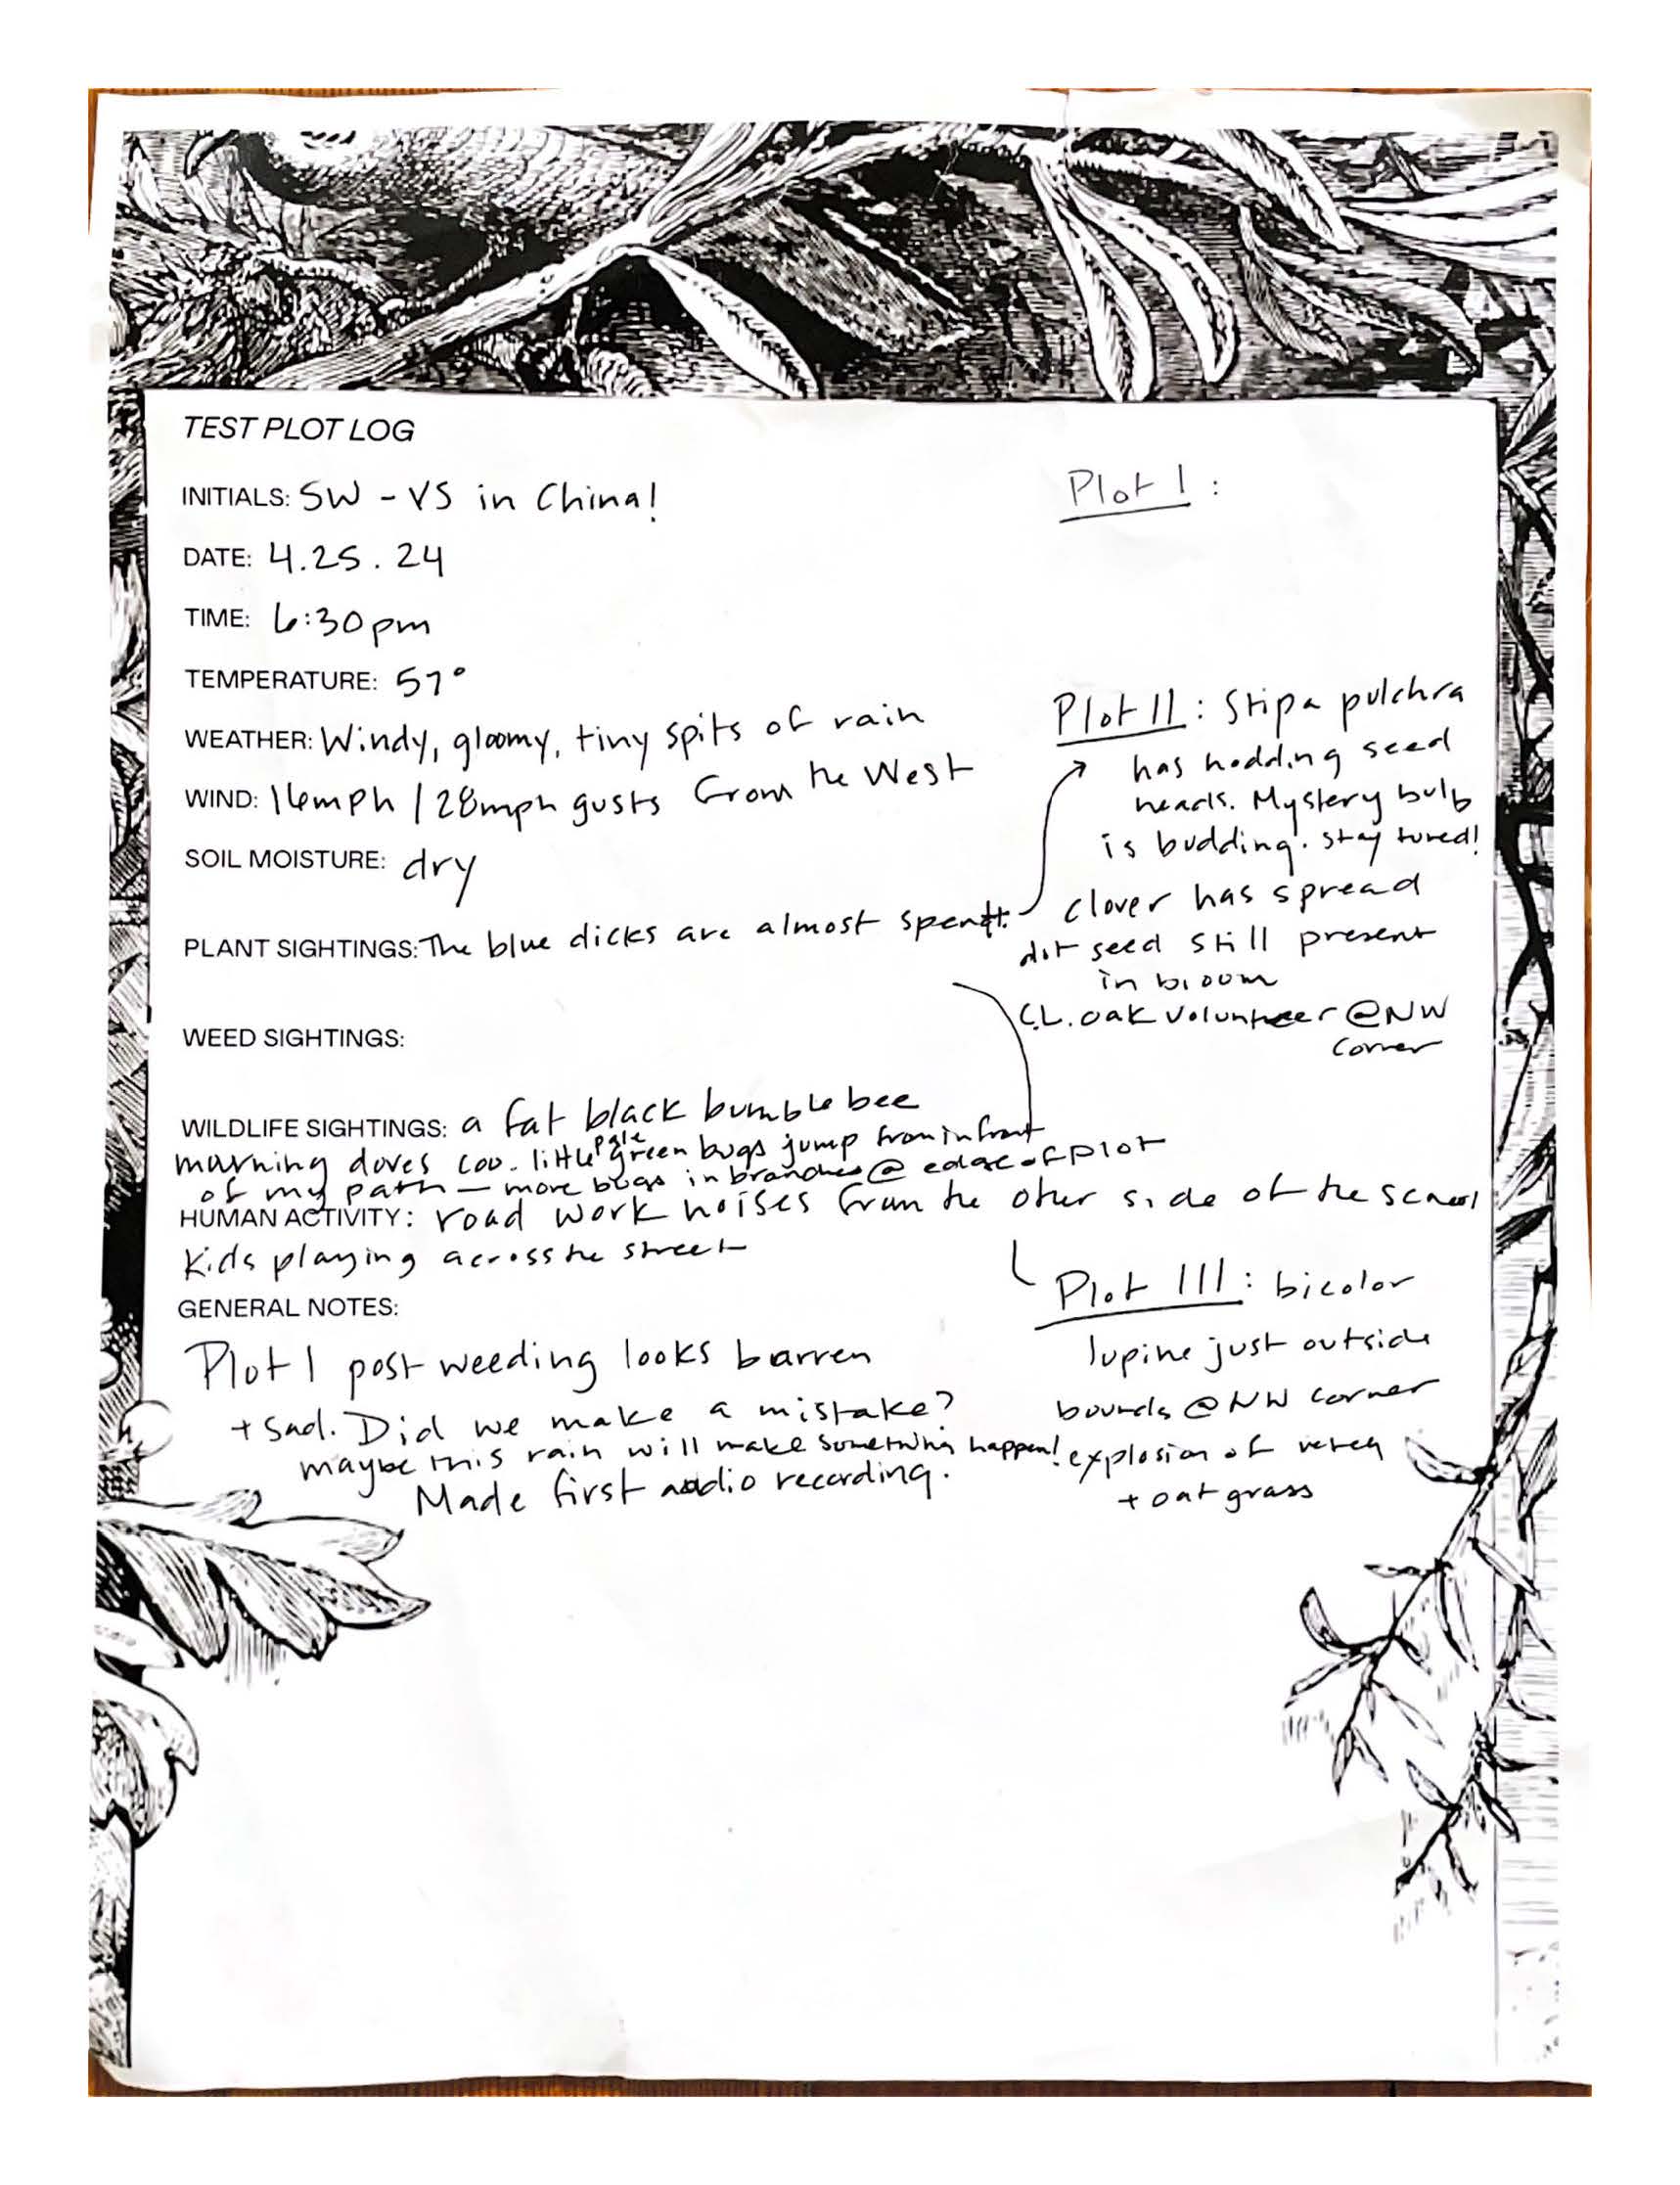 TEST PLOT LOG
INITIALS: SW - VS in China!
DATE: 4.25.24
TIME: 6:30pm
TEMPERATURE: 57°
WEATHER: Windy, gloomy, tiny spits of rain
WIND: 16mph / 28mph gusts from the West
SOIL MOISTURE: dry
PLANT SIGHTINGS: The blue dicks are almost spent.
WEED SIGHTINGS:
WILDLIFE SIGHTINGS: a fat black bumble bee
mourning doves coo. little pale green bugs jump from in front
of my path — more bugs in branches @ edge of plot
HUMAN ACTIVITY: road work noises from the other side of the school
Kids playing across the street
GENERAL NOTES:
Plot 1 post weeding looks barren
+ sad. Did we make a mistake?
maybe this rain will make something happen!
Made first audio recording.
Plot I:
Plot II: Stipa pulchra
has nodding seed
heads. Mystery bulb
is budding. stay tuned!
clover has spread
dot seed still present
in bloom
C.L. oak volunteer @ NW
corner
Plot III: bicolor
lupine just outside
bounds @ NW corner
explosion of vetch
+ oat grass